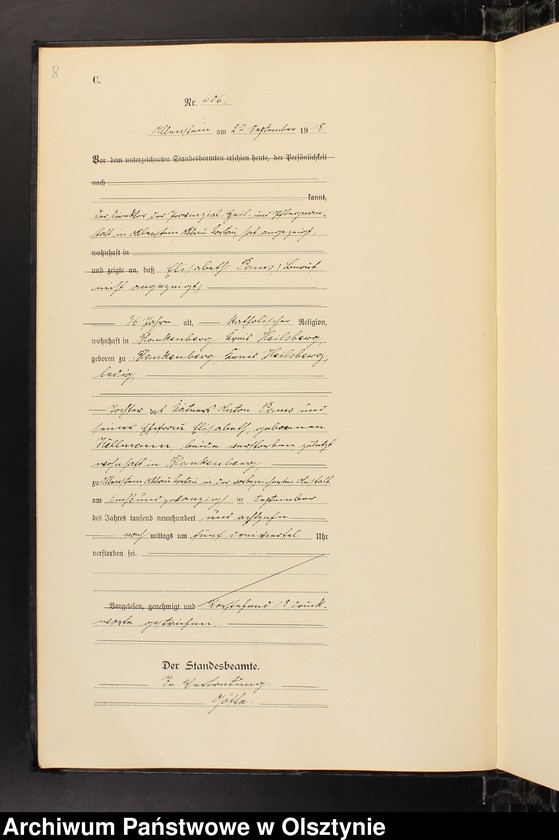 8
C.
Nr. 606.
Allenstein am 27 September 1918.
Vor dem unterzeichneten Standesbeamten erschien heute, der Persönlichkeit
nach
kannt,
der Direktor der Provinzial Heil- und Pflegean-
stalt in Allenstein Abbau Kortau hat angezeigt,
wohnhaft in
und zeigte an, daß Elisabeth (Beruf
nicht angezeigt)
36 Jahre alt, katholischer Religion,
wohnhaft in Blankenberg Kreis Heilsberg,
geboren zu Blankenberg, Kreis Heilsberg,
ledig,
Tochter des Kätners Anton und
seiner Ehefrau Elisabeth, geborenen
beide verstorben zuletzt
wohnhaft in Blankenberg
zu Allenstein Abbau Kortau in der vorbezeichneten Anstalt
am sechsundzwanzigsten September
des Jahres tausend neunhundert und achtzehn
nach mittags um fünf dreiviertel Uhr
verstorben sei.
Vorgelesen, genehmigt und Vorstehend 18 Druck-
worte gestrichen.
Der Standesbeamte.
In Vertretung
Archiwum Państwowe w Olsztynie